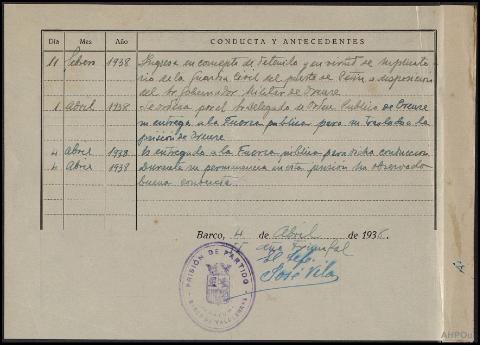 Día Mes Año CONDUCTA Y ANTECEDENTES
11 febrero 1938 Ingresa en concepto de detenido y en virtud de
de la Guardia Civil del puesto de a disposición
del Sr. Gobernador Militar de Orense
1 abril 1938 Se ordena por el Sr. Delegado de Orden Publico de Orense
su entrega a la Fuerza publica para su traslado a la
prisión de Orense
4 abril 1938 Es entregado a la Fuerza publica para dicha conduccion
4 Abril 1938 Durante su permanencia en esta prisión ha observado
buena conducta.
Barco, 4 de Abril de 1938.
II año triunfal
El Jefe,
José Vila
PRISIÓN DE PARTIDO
BARCO DE VALDEORRAS
AHPOu